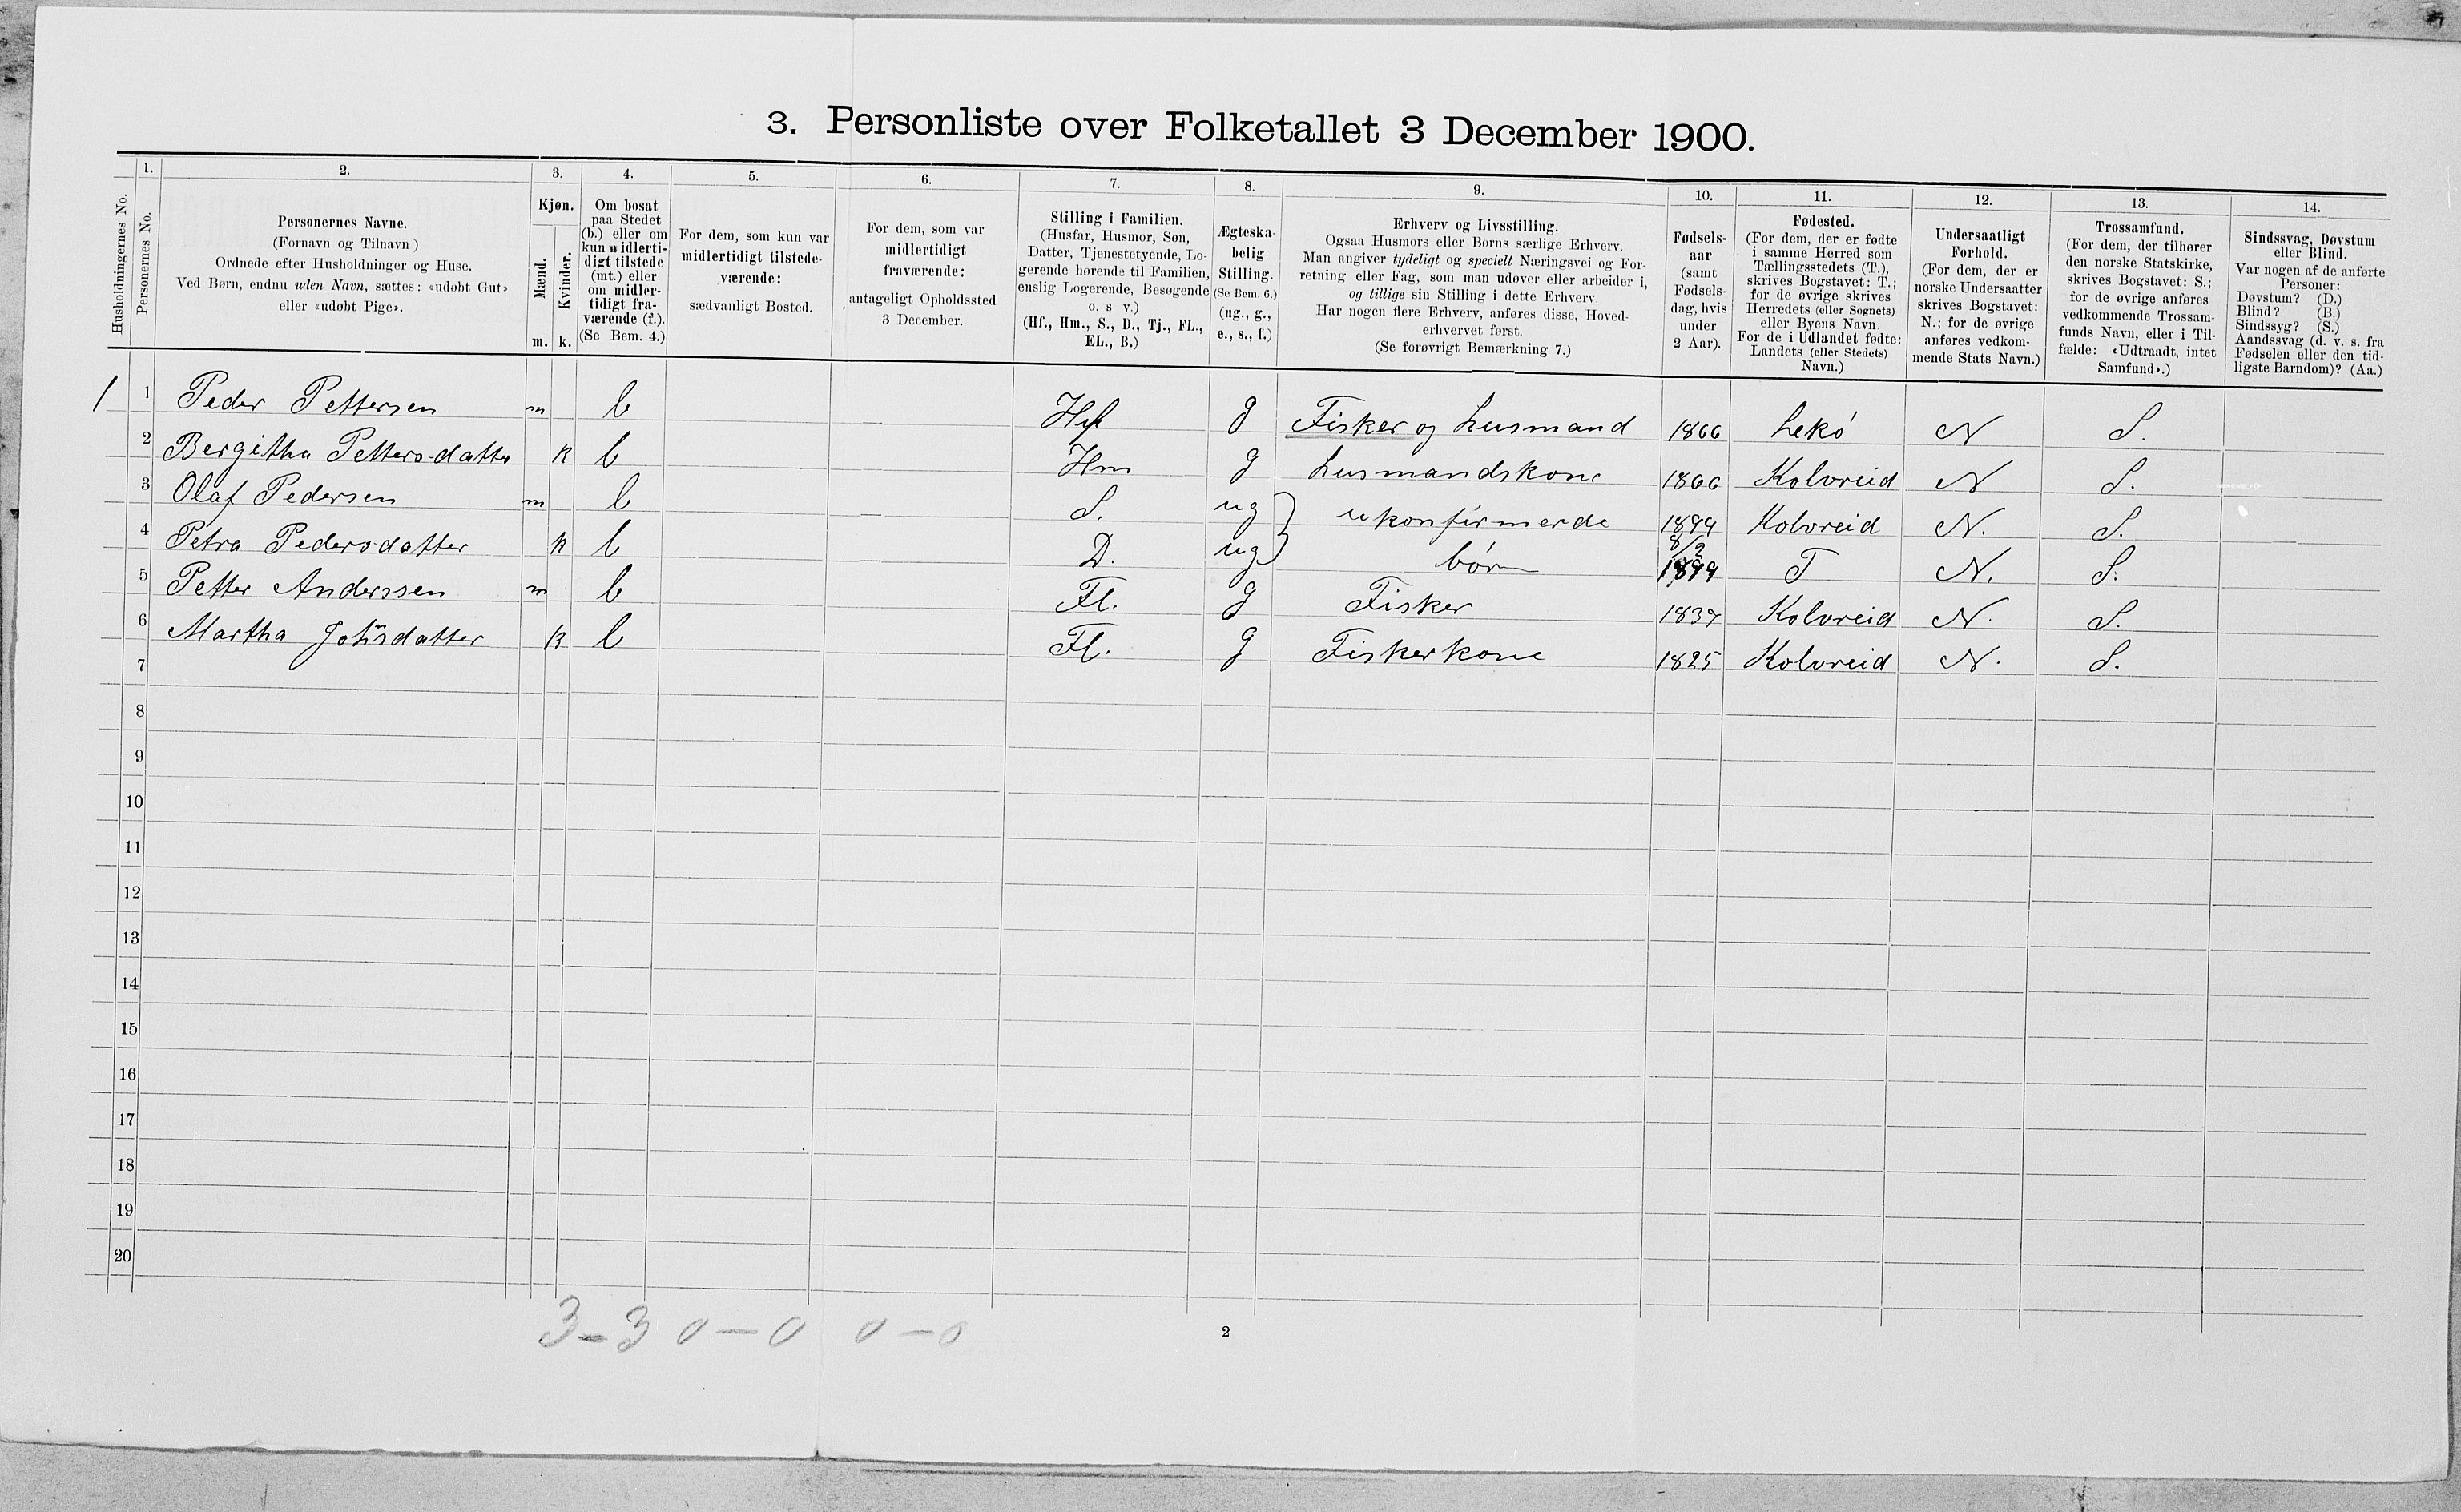 3. Personliste over Folketallet 3 December 1900.
Husholdningernes No.
1.
Personernes No.
2.
Personernes Navne.
(Fornavn og Tilnavn)
Ordnede efter Husholdninger og Huse.
Ved Børn, endnu uden Navn, sættes: «udøbt Gut»
eller «udøbt Pige».
3.
Kjøn.
Mænd.
Kvinder.
m. k.
4.
Om bosat
paa Stedet
(b.) eller om
kun midlerti-
digt tilstede
(mt.) eller
om midler-
tidigt fra-
værende (f.).
(Se Bem. 4.)
5.
For dem, som kun var
midlertidigt tilstede-
værende:
sædvanligt Bosted.
6.
For dem, som var
midlertidigt
fraværende:
antageligt Opholdssted
3 December.
7.
Stilling i Familien.
(Husfar, Husmor, Søn,
Datter, Tjenestetyende, Lo-
gerende hørende til Familien,
enslig Logerende, Besøgende
o. s v.)
(Hf., Hm., S., D., Tj., FL.,
EL., B.)
8.
Ægteska-
belig
Stilling.
(Se Bem. 6.)
(ug., g.,
e., s., f.)
9.
Erhverv og Livsstilling.
Ogsaa Husmors eller Børns særlige Erhverv.
Man angiver tydeligt og specielt Næringsvei og For-
retning eller Fag, som man udøver eller arbeider i,
og tillige sin Stilling i dette Erhverv.
Har nogen flere Erhverv, anføres disse, Hoved-
erhvervet først.
(Se forøvrigt Bemærkning 7.)
10.
Fødsels-
aar
(samt
Fødsels-
dag, hvis
under
2 Aar).
11.
Fødested.
(For dem, der er fødte
i samme Herred som
Tællingsstedets (T.),
skrives Bogstavet: T.;
for de øvrige skrives
Herredets (eller Sognets)
eller Byens Navn.
For de i Udlandet fødte:
Landets (eller Stedets)
Navn.)
12.
Undersaatligt
Forhold.
(For dem, der er
norske Undersaatter
skrives Bogstavet:
N.; for de øvrige
anføres vedkom-
mende Stats Navn.)
13.
Trossamfund.
(For dem, der tilhører
den norske Statskirke,
skrives Bogstavet: S.;
for de øvrige anføres
vedkommende Trossam-
funds Navn, eller i Til-
fælde: «Udtraadt, intet
Samfund».)
14.
Sindssvag, Døvstum
eller Blind.
Var nogen af de anførte
Personer:
Døvstum? (D.)
Blind? (B.)
Sindssyg? (S.)
Aandssvag (d. v. s. fra
Fødselen eller den tid-
ligste Barndom)? (Aa.)
1 1 Peder Pettersen m b Hf g Fisker og Husmand 1866 Lekö N S.
2 Bergitha Pettersdatter k b Hm g Husmandskone 1866 Kolvreid N S.
3 Olaf Pedersen m b S. ug ukonfirmerde 1894 Kolvreid N. S.
4 Petra Pedersdatter k b D. ug börn 8/2 1899 T N. S.
5 Petter Anderssen m b Fl. g Fisker 1837 Kolvreid N. S.
6 Martha Johnsdatter k b Fl. g Fiskerkone 1825 Kolvreid N. S.
7
8
9
10
11
12
13
14
15
16
17
18
19
20
3-3 0-0 0-0
2